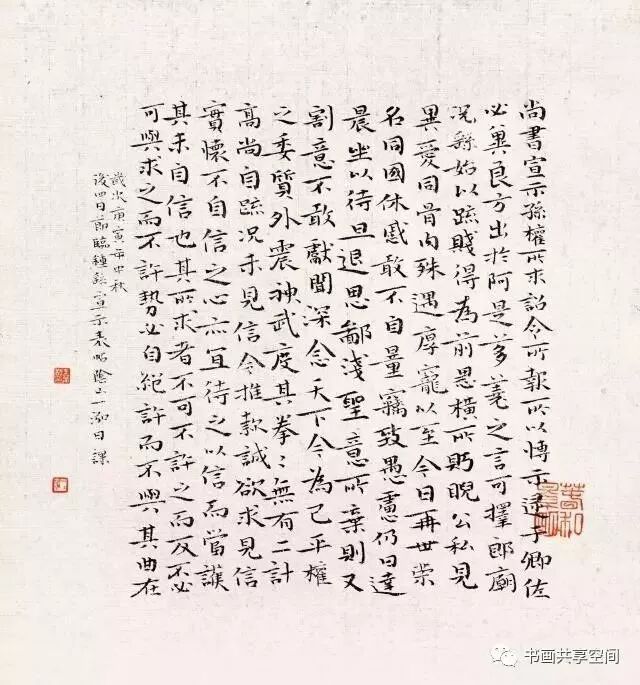 尚書宣示孫權所求詔令所報所以博示逮于卿佐
必冀良方出於阿是芻蕘之言可擇郎廟
況繇始以疏賤得為前恩橫所眄睨公私見
異愛同骨肉殊遇厚寵以至今日再世榮
名同國休慼敢不自量竊致愚慮仍日達
晨坐以待旦退思鄙淺聖意所棄則又
割意不敢獻聞深念天下今為已平權
之委質外震神武度其拳〻無有二計
高尚自疏況未見信今推款誠欲求見信
實懷不自信之心亦宜待之以信而當護
其未自信也其所求者不可不許之而反不必
可與求之而不許勢必自絕許而不與其曲在
歲次庚寅年中秋
後四日節臨鍾繇宣示表帖 日課
书画共享空间